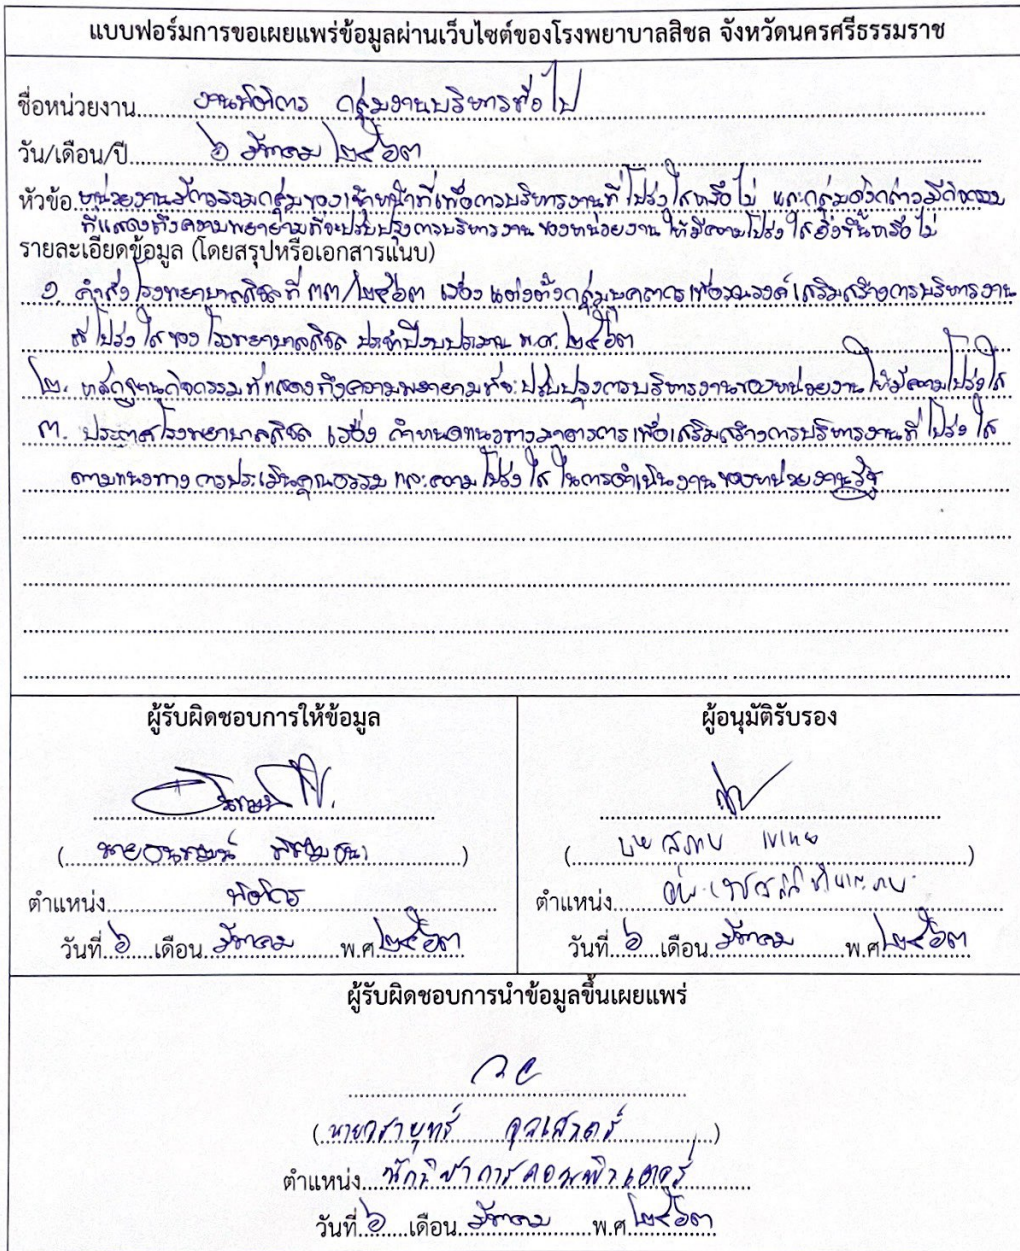 แบบฟอร์มการขอเผยแพร่ข้อมูลผ่านเว็บไซต์ของโรงพยาบาลสิชล จังหวัดนครศรีธรรมราช
ชื่อหน่วยงาน งานนิติการ กลุ่มงานบริหารทั่วไป
วัน/เดือน/ปี ๖ มีนาคม ๒๕๖๓
หัวข้อ หน่วยงานมีการรวมกลุ่มของเจ้าหน้าที่เพื่อการบริหารงานที่โปร่งใสหรือไม่ และกลุ่มดังกล่าวมีกิจกรรม
ที่แสดงถึงความพยายามที่จะปรับปรุงการบริหารงานของหน่วยงานให้มีความโปร่งใสยิ่งขึ้นหรือไม่
รายละเอียดข้อมูล (โดยสรุปหรือเอกสารแนบ)
๑. คำสั่งโรงพยาบาลสิชลที่ ๓๓/๒๕๖๓ เรื่อง แต่งตั้งกลุ่มบุคลากรเพื่อรณรงค์เสริมสร้างการบริหารงาน
ที่โปร่งใสของโรงพยาบาลสิชล ประจำปีงบประมาณ พ.ศ. ๒๕๖๓
๒. หลักฐานกิจกรรมที่แสดงถึงความพยายามที่จะปรับปรุงการบริหารงานของหน่วยงานให้มีความโปร่งใส
๓. ประกาศโรงพยาบาลสิชล เรื่อง กำหนดแนวทางมาตรการเพื่อเสริมสร้างการบริหารงานที่โปร่งใส
ตามแนวทางการประเมินคุณธรรมและความโปร่งใสในการดำเนินงานของหน่วยงานรัฐ
ผู้รับผิดชอบการให้ข้อมูล
( นาย )
ตำแหน่ง นิติกร
วันที่ ๖ เดือน มีนาคม พ.ศ ๒๕๖๓
ผู้อนุมัติรับรอง
( )
ตำแหน่ง
วันที่ ๖ เดือน มีนาคม พ.ศ ๒๕๖๓
ผู้รับผิดชอบการนำข้อมูลขึ้นเผยแพร่
( นายวรายุทธ์ )
ตำแหน่ง นักวิชาการคอมพิวเตอร์
วันที่ ๖ เดือน มีนาคม พ.ศ ๒๕๖๓